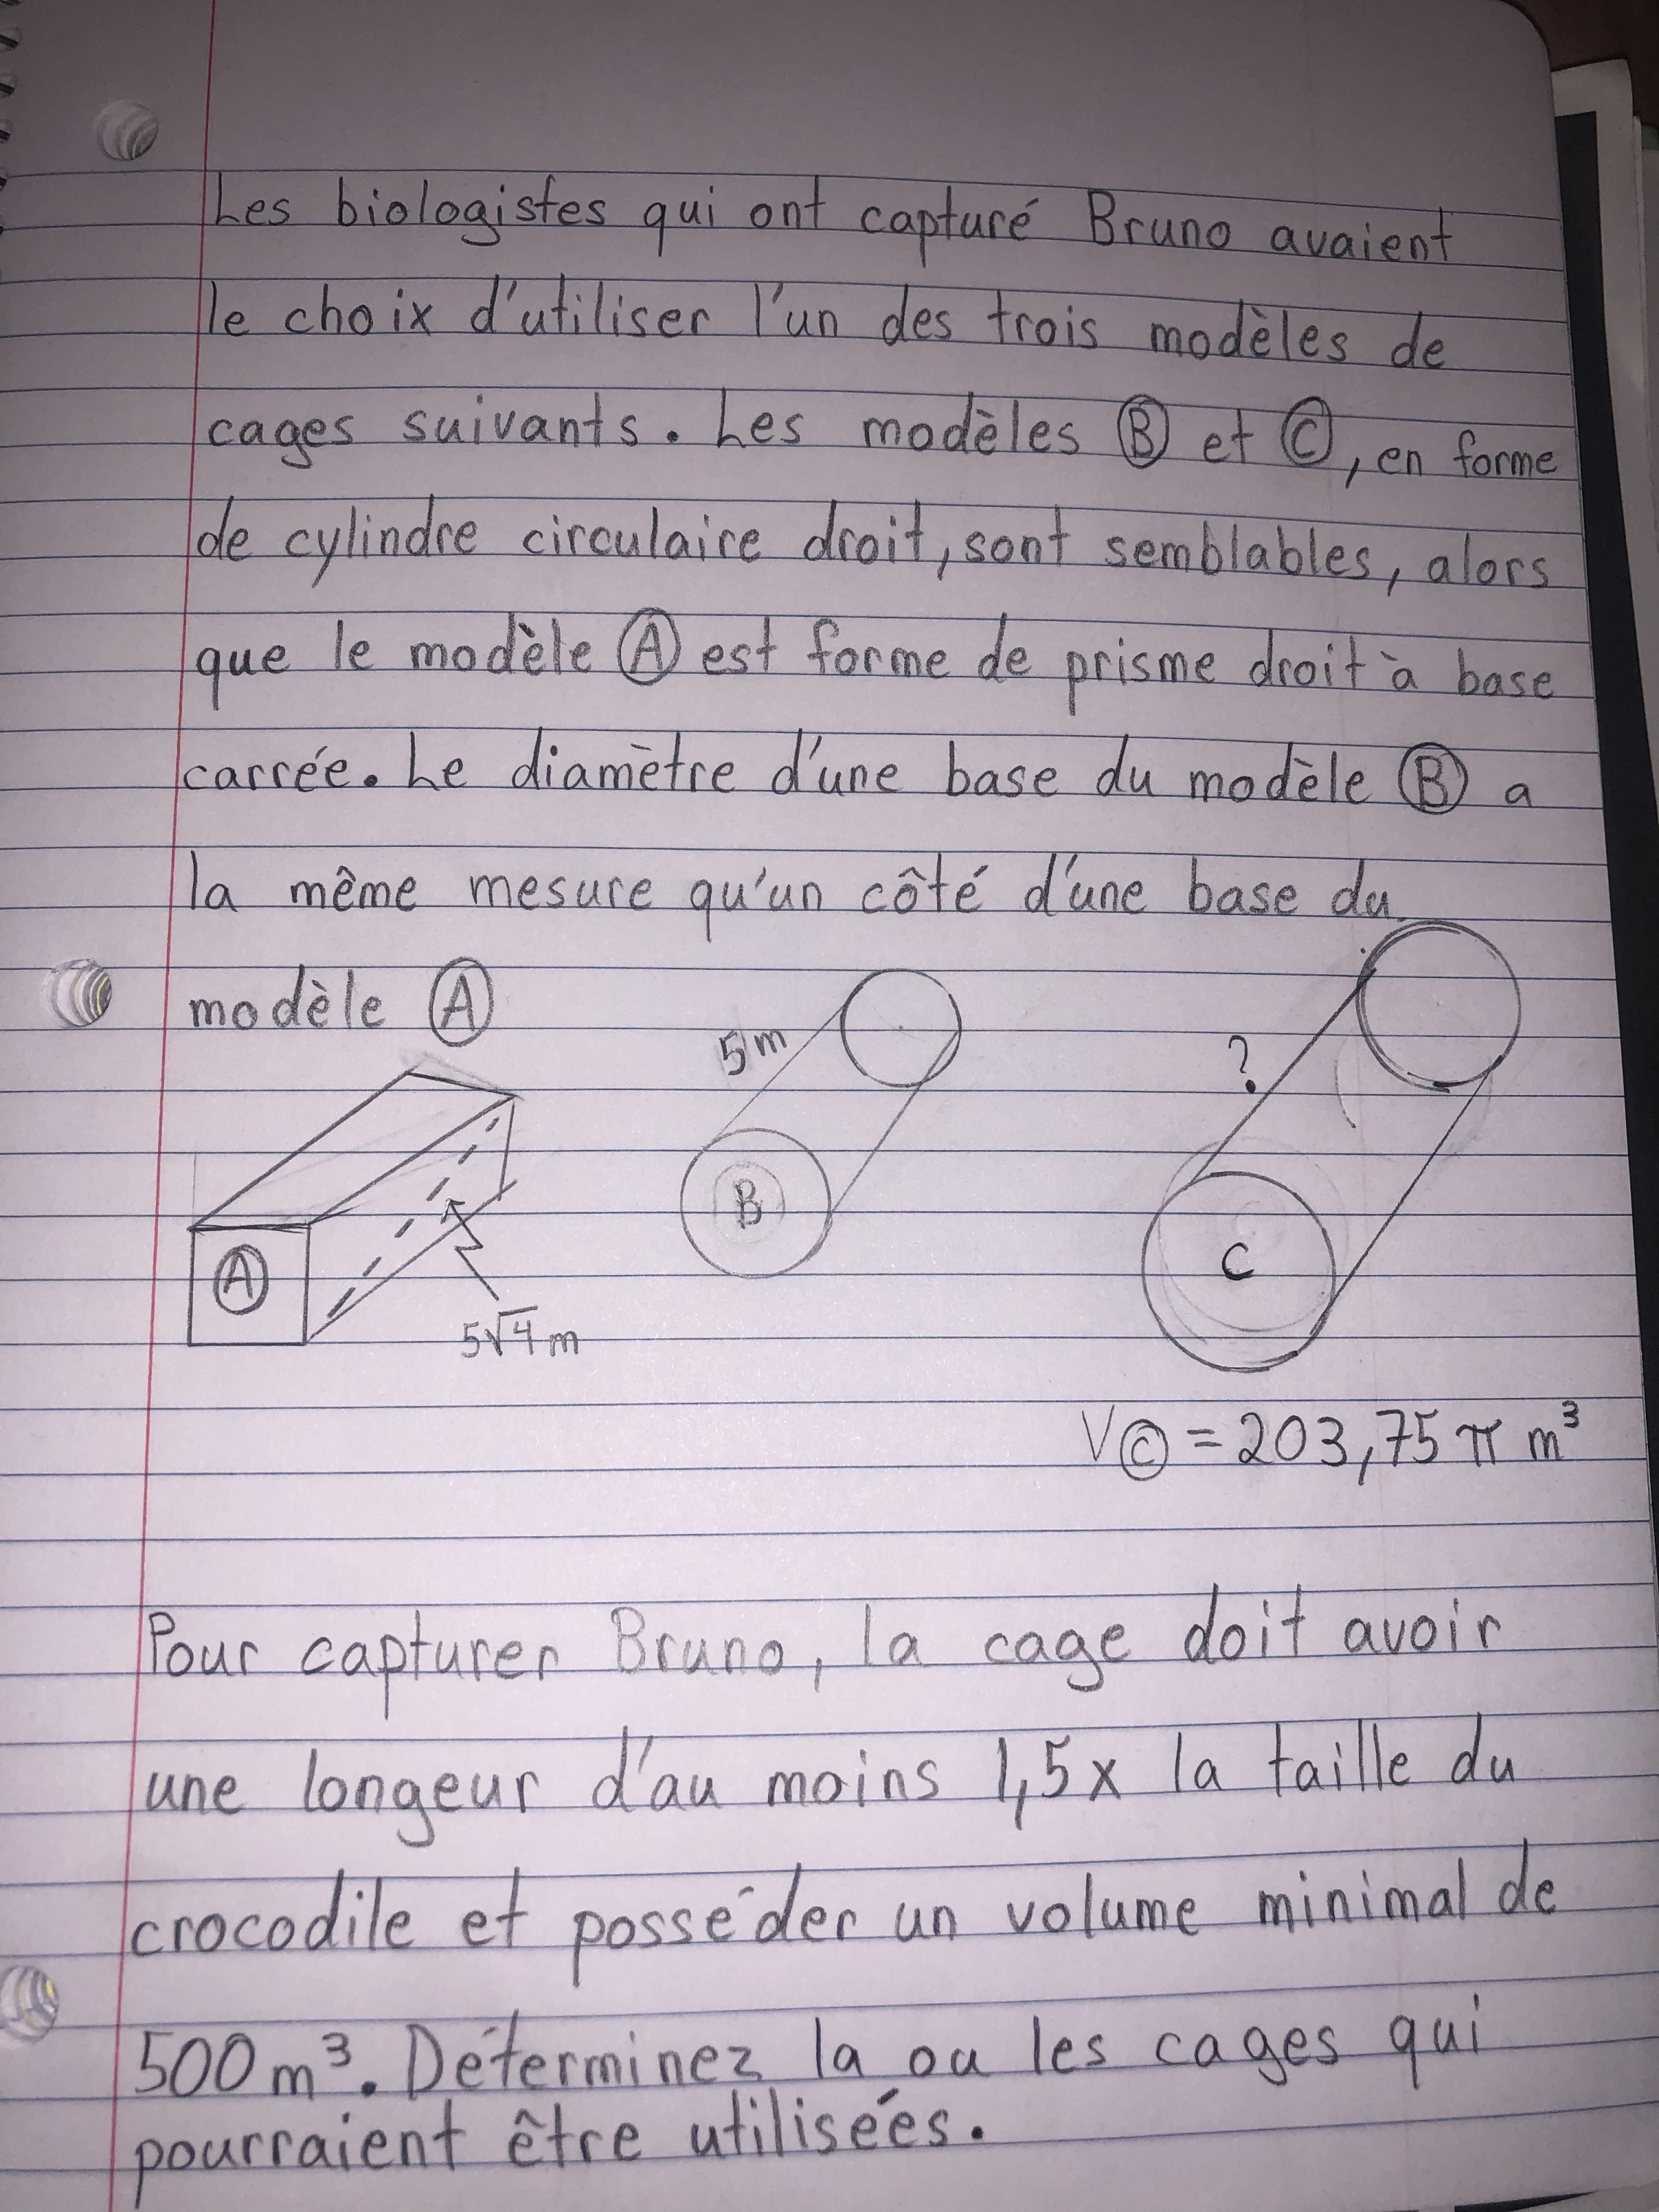 Les biologistes qui ont capturé Bruno avaient
le choix d'utiliser l'un des trois modèles de
cages suivants. Les modèles Ⓑ et Ⓒ, en forme
de cylindre circulaire droit, sont semblables, alors
que le modèle Ⓐ est forme de prisme droit à base
carrée. Le diamètre d'une base du modèle Ⓑ a
la même mesure qu'un côté d'une base du
modèle Ⓐ
5m
?
B
Ⓐ
C
5√4m
VⒸ = 203,75 π m³
Pour capturer Bruno, la cage doit avoir
une longeur d'au moins 1,5x la taille du
crocodile et posséder un volume minimal de
500m³. Déterminez la ou les cages qui
pourraient être utilisées.